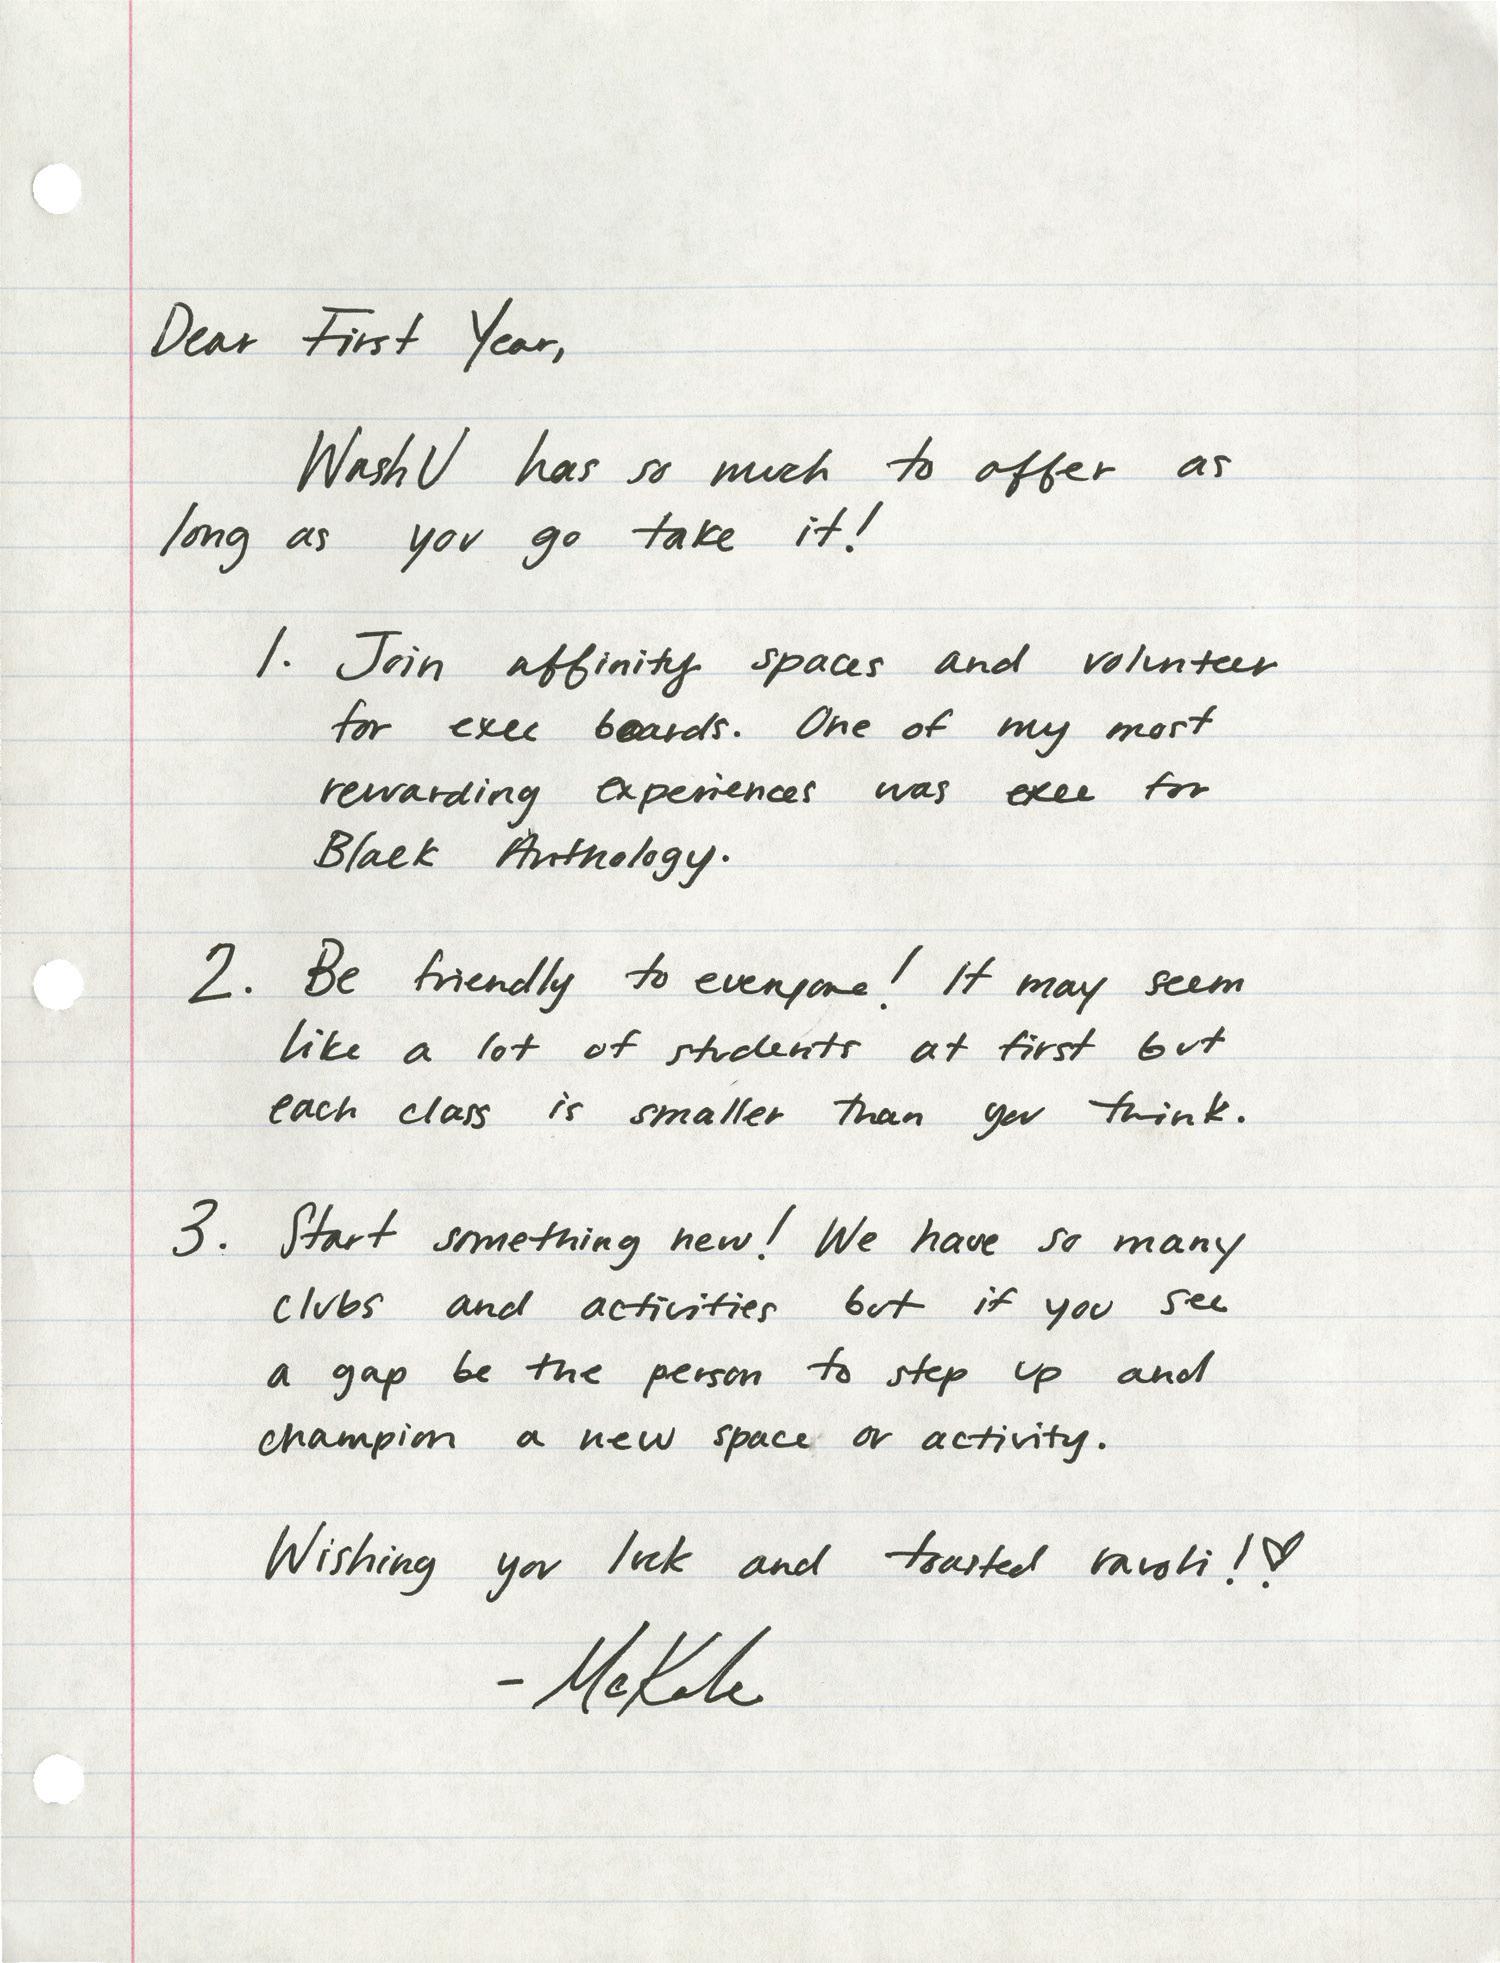 Dear First Year,
WashU has so much to offer as
long as you go take it!
1. Join affinity spaces and volunteer
for exec boards. One of my most
rewarding experiences was exec for
Black Anthology.
2. Be friendly to everyone! It may seem
like a lot of students at first but
each class is smaller than you think.
3. Start something new! We have so many
clubs and activities but if you see
a gap be the person to step up and
champion a new space or activity.
Wishing you luck and toasted ravoli!♡
- McKale